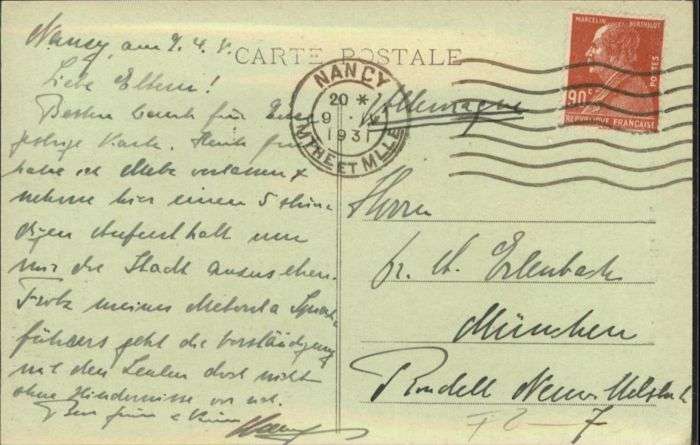 CARTE POSTALE
Nancy, am 9. 4.
Liebe Eltern!
Besten Dank für Eure
gestrige Karte. Heute früh
habe ich Metz verlassen +
nehme hier einen 5 stün-
digen Aufenthalt um
mir die Stadt anzusehen.
Trotz meines Metoula Sprach-
führers geht die Verständigung
mit den Leuten doch nicht
ohne Hindernisse vor sich.
NANCY
20 *
9
1931
MTHE ET MLLE
Allemagne
MARCELIN BERTHELOT
POSTES
90c
REPUBLIQUE FRANÇAISE
Herrn
Erlenbach
München
Rondell Neuwittelsbach
7